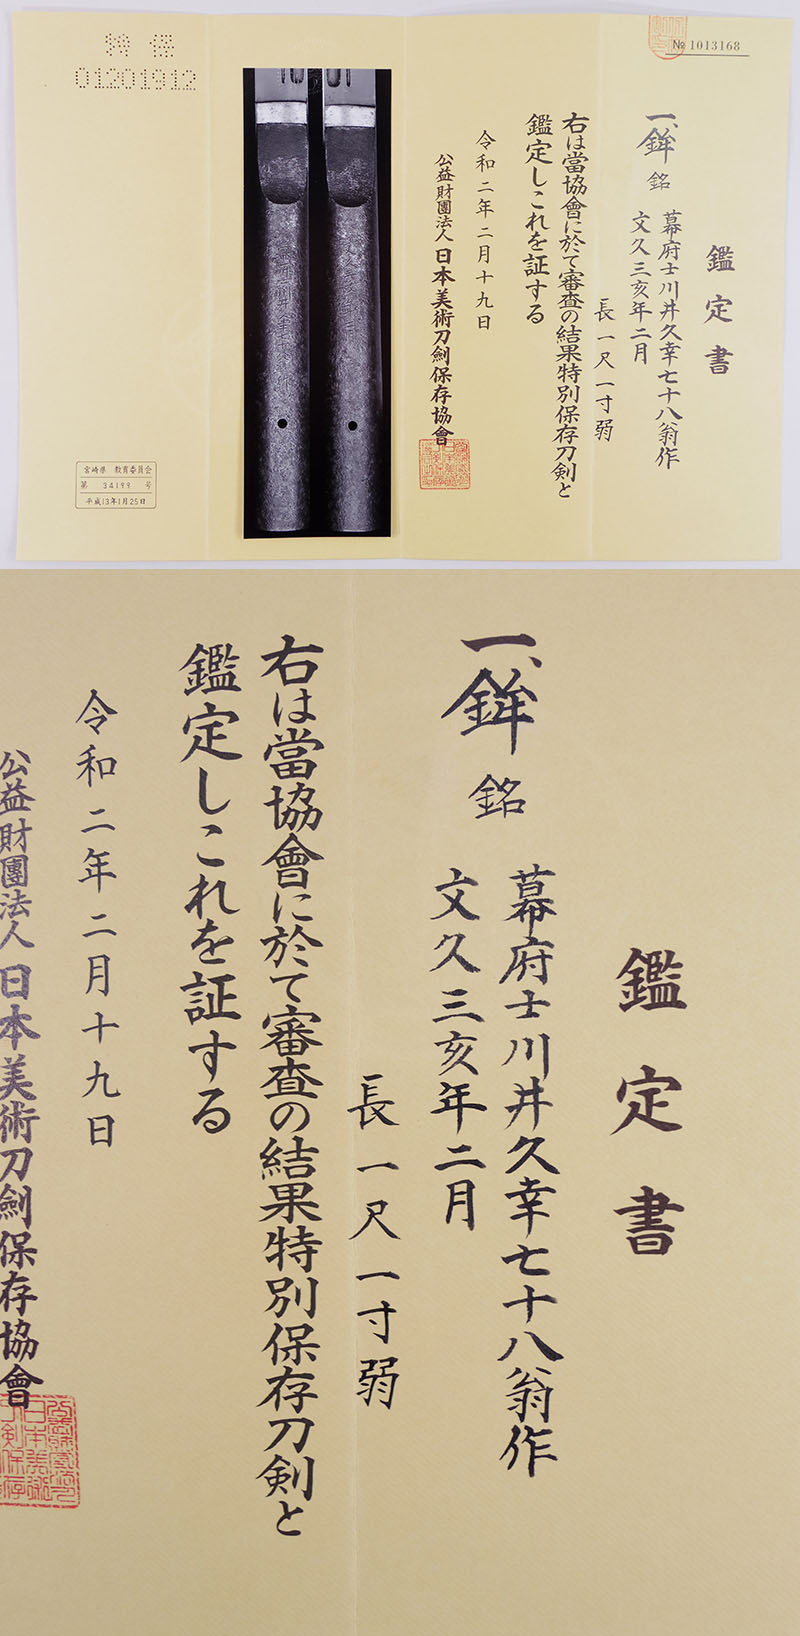 № 1013168
鑑定書
一、鉾 銘 幕府士川井久幸七十八翁作
文久三亥年二月
長一尺一寸弱
右は當協會に於て審査の結果特別保存刀剣と
鑑定しこれを証する
令和二年二月十九日
公益財團法人日本美術刀劍保存協會
特保
01201912
宮崎県 教育委員会
第 34199 号
平成13年1月25日
鑑定書
一、鉾 銘 幕府士川井久幸七十八翁作
文久三亥年二月
長一尺一寸弱
右は當協會に於て審査の結果特別保存刀剣と
鑑定しこれを証する
令和二年二月十九日
公益財團法人日本美術刀劍保存協會